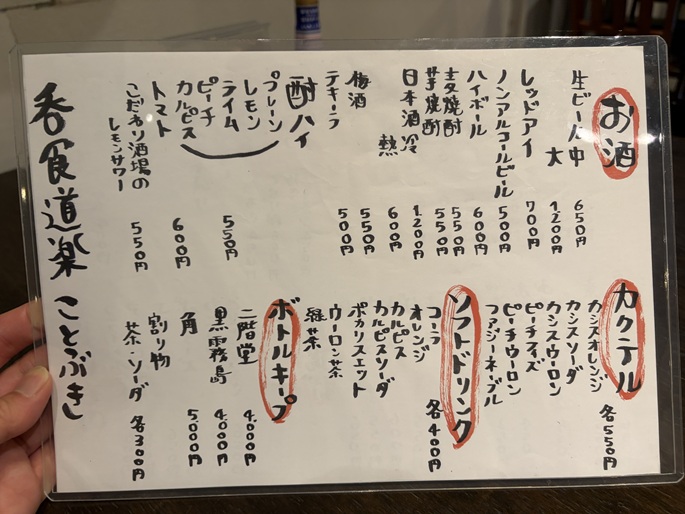 お酒
生ビール 中 650円
大 1200円
レッドアイ 700円
ノンアルコールビール 500円
ハイボール 600円
麦焼酎 550円
芋焼酎 550円
日本酒 冷 1200円
熱 600円
梅酒 550円
テキーラ 500円
酎ハイ
プレーン
レモン
ライム 550円
ピーチ
カルピス
トマト 600円
こだわり酒場の
レモンサワー 550円
カクテル
カシスオレンジ 各550円
カシスソーダ
カシスウーロン
ピーチフィズ
ピーチウーロン
ファジーネーブル
ソフトドリンク
コーラ 各400円
オレンジ
カルピス
カルピスソーダ
ポカリスエット
ウーロン茶
緑茶
ボトルキープ
二階堂 4,000円
黒霧島 4,000円
角 5000円
割り物
茶・ソーダ 各300円
呑食道楽 ことぶき